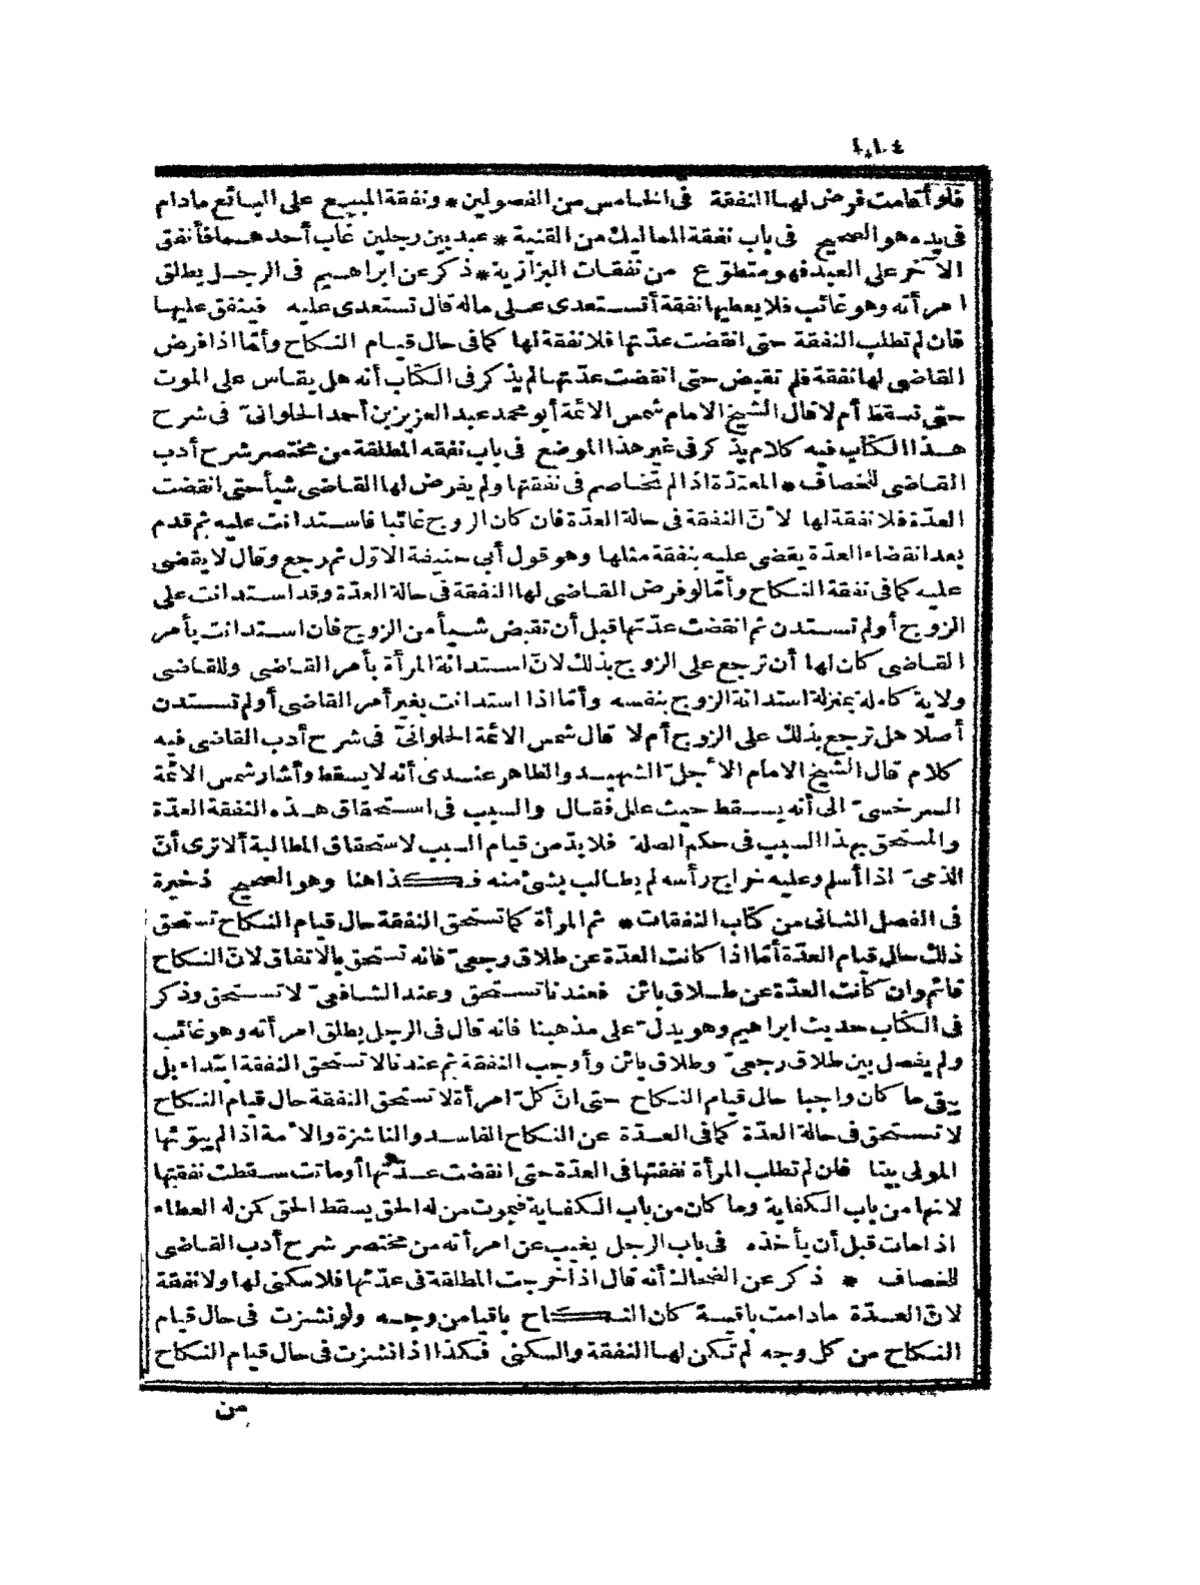 فلو أقامت فرض لها النفقة في الخامس من الفصولين * ونفقة المبيع على البائع مادام
في يده هو الصحيح في باب نفقة المماليك من القنية * عبد بين رجلين غاب أحدهما فأنفق
الآخر على العبد فهو متطوّع من نفقات البزازية * ذكر عن ابراهيم في الرجل يطلق
امرأته وهو غائب فلا يعطيها نفقة أتستعدى على ماله قال تستعدى عليه فينفق عليها
فان لم تطلب النفقة حتى انقضت عدّتها فلا نفقة لها كما في حال قيام النكاح وأمّا اذا فرض
القاضي لها نفقة فلم تقبض حتى انقضت عدّتها لم يذكر في الكتاب أنه هل يقاس على الموت
حتى تسقط أم لا قال الشيخ الامام شمس الائمة أبو محمد عبد العزيز بن أحمد الحلوانيّ في شرح
هذا الكتاب فيه كلام يذكر في غير هذا الموضع في باب نفقه المطلقة من مختصر شرح أدب
القاضي للخصاف * المعتدّة اذا لم تخاصم في نفقتها ولم يفرض لها القاضي شيأ حتى انقضت
العدّة فلا نفقة لها لأنّ النفقة في حالة العدّة فان كان الزوج غائبا فاستدانت عليه ثم قدم
بعد انقضاء العدّة يقضي عليه بنفقة مثلها وهو قول أبي حنيفة الاوّل ثم رجع وقال لا يقضى
عليه كما في نفقة النكاح وأمّا لو فرض القاضي لها النفقة في حالة العدّة وقد استدانت على
الزوج أولم تستدن ثم انقضت عدّتها قبل أن تقبض شيأ من الزوج فان استدانت بأمر
القاضي كان لها أن ترجع على الزوج بذلك لانّ استدانة المرأة بأمر القاضي وللقاضي
ولاية كاملة بمنزلة استدانة الزوج بنفسه وأمّا اذا استدانت بغير أمر القاضي أولم تستدن
أصلا هل ترجع بذلك على الزوج أم لا قال شمس الائمة الحلوانيّ في شرح أدب القاضي فيه
كلام قال الشيخ الامام الأجلّ الشهيد والظاهر عندى أنه لا يسقط وأشار شمس الائمة
السرخسيّ الى أنه يسقط حيث علل فقال والسبب في استحقاق هذه النفقة العدّة
والمستحق بهذا السبب في حكم الصلة فلا بدّ من قيام السبب لاستحقاق المطالبة ألا ترى أنّ
الذمىّ اذا أسلم وعليه خراج رأسه لم يطالب بشئ منه فكذا هنا وهو الصحيح ذخيرة
في الفصل الثاني من كتاب النفقات * ثم المرأة كما تستحق النفقة حال قيام النكاح تستحق
ذلك حال قيام العدّة أمّا اذا كانت العدّة عن طلاق رجعيّ فانه تستحق بالاتفاق لانّ النكاح
قائم وان كانت العدّة عن طلاق بائن فعندنا تستحق وعند الشافعيّ لا تستحق وذكر
في الكتاب حديث ابراهيم وهو يدلّ على مذهبنا فانه قال في الرجل يطلق امرأته وهو غائب
ولم يفصل بين طلاق رجعيّ وطلاق بائن وأوجب النفقة ثم عندنا لا تستحق النفقة ابتداء بل
يبقى ما كان واجبا حال قيام النكاح حتى انّ كلّ امرأة لا تستحق النفقة حال قيام النكاح
لا تستحق في حالة العدّة كما في العدّة عن النكاح الفاسد والناشزة والأمة اذا لم يبوّئها
المولى بيتا فان لم تطلب المرأة نفقتها في العدّة حتى انقضت عدّتها أو ماتت سقطت نفقتها
لانها من باب الكفاية وما كان من باب الكفاية فيموت من له الحق يسقط الحق كمن له العطاء
اذا مات قبل أن يأخذه في باب الرجل يغيب عن امرأته من مختصر شرح أدب القاضي
للخصاف * ذكر عن الضحاك أنه قال اذا خرجت المطلقة في عدّتها فلا سكنى لها ولا نفقة
لانّ العدّة مادامت باقية كان النكاح باقيا من وجه ولو نشزت في حال قيام
النكاح من كل وجه لم تكن لها النفقة والسكنى فكذا اذا نشزت في حال قيام النكاح
من